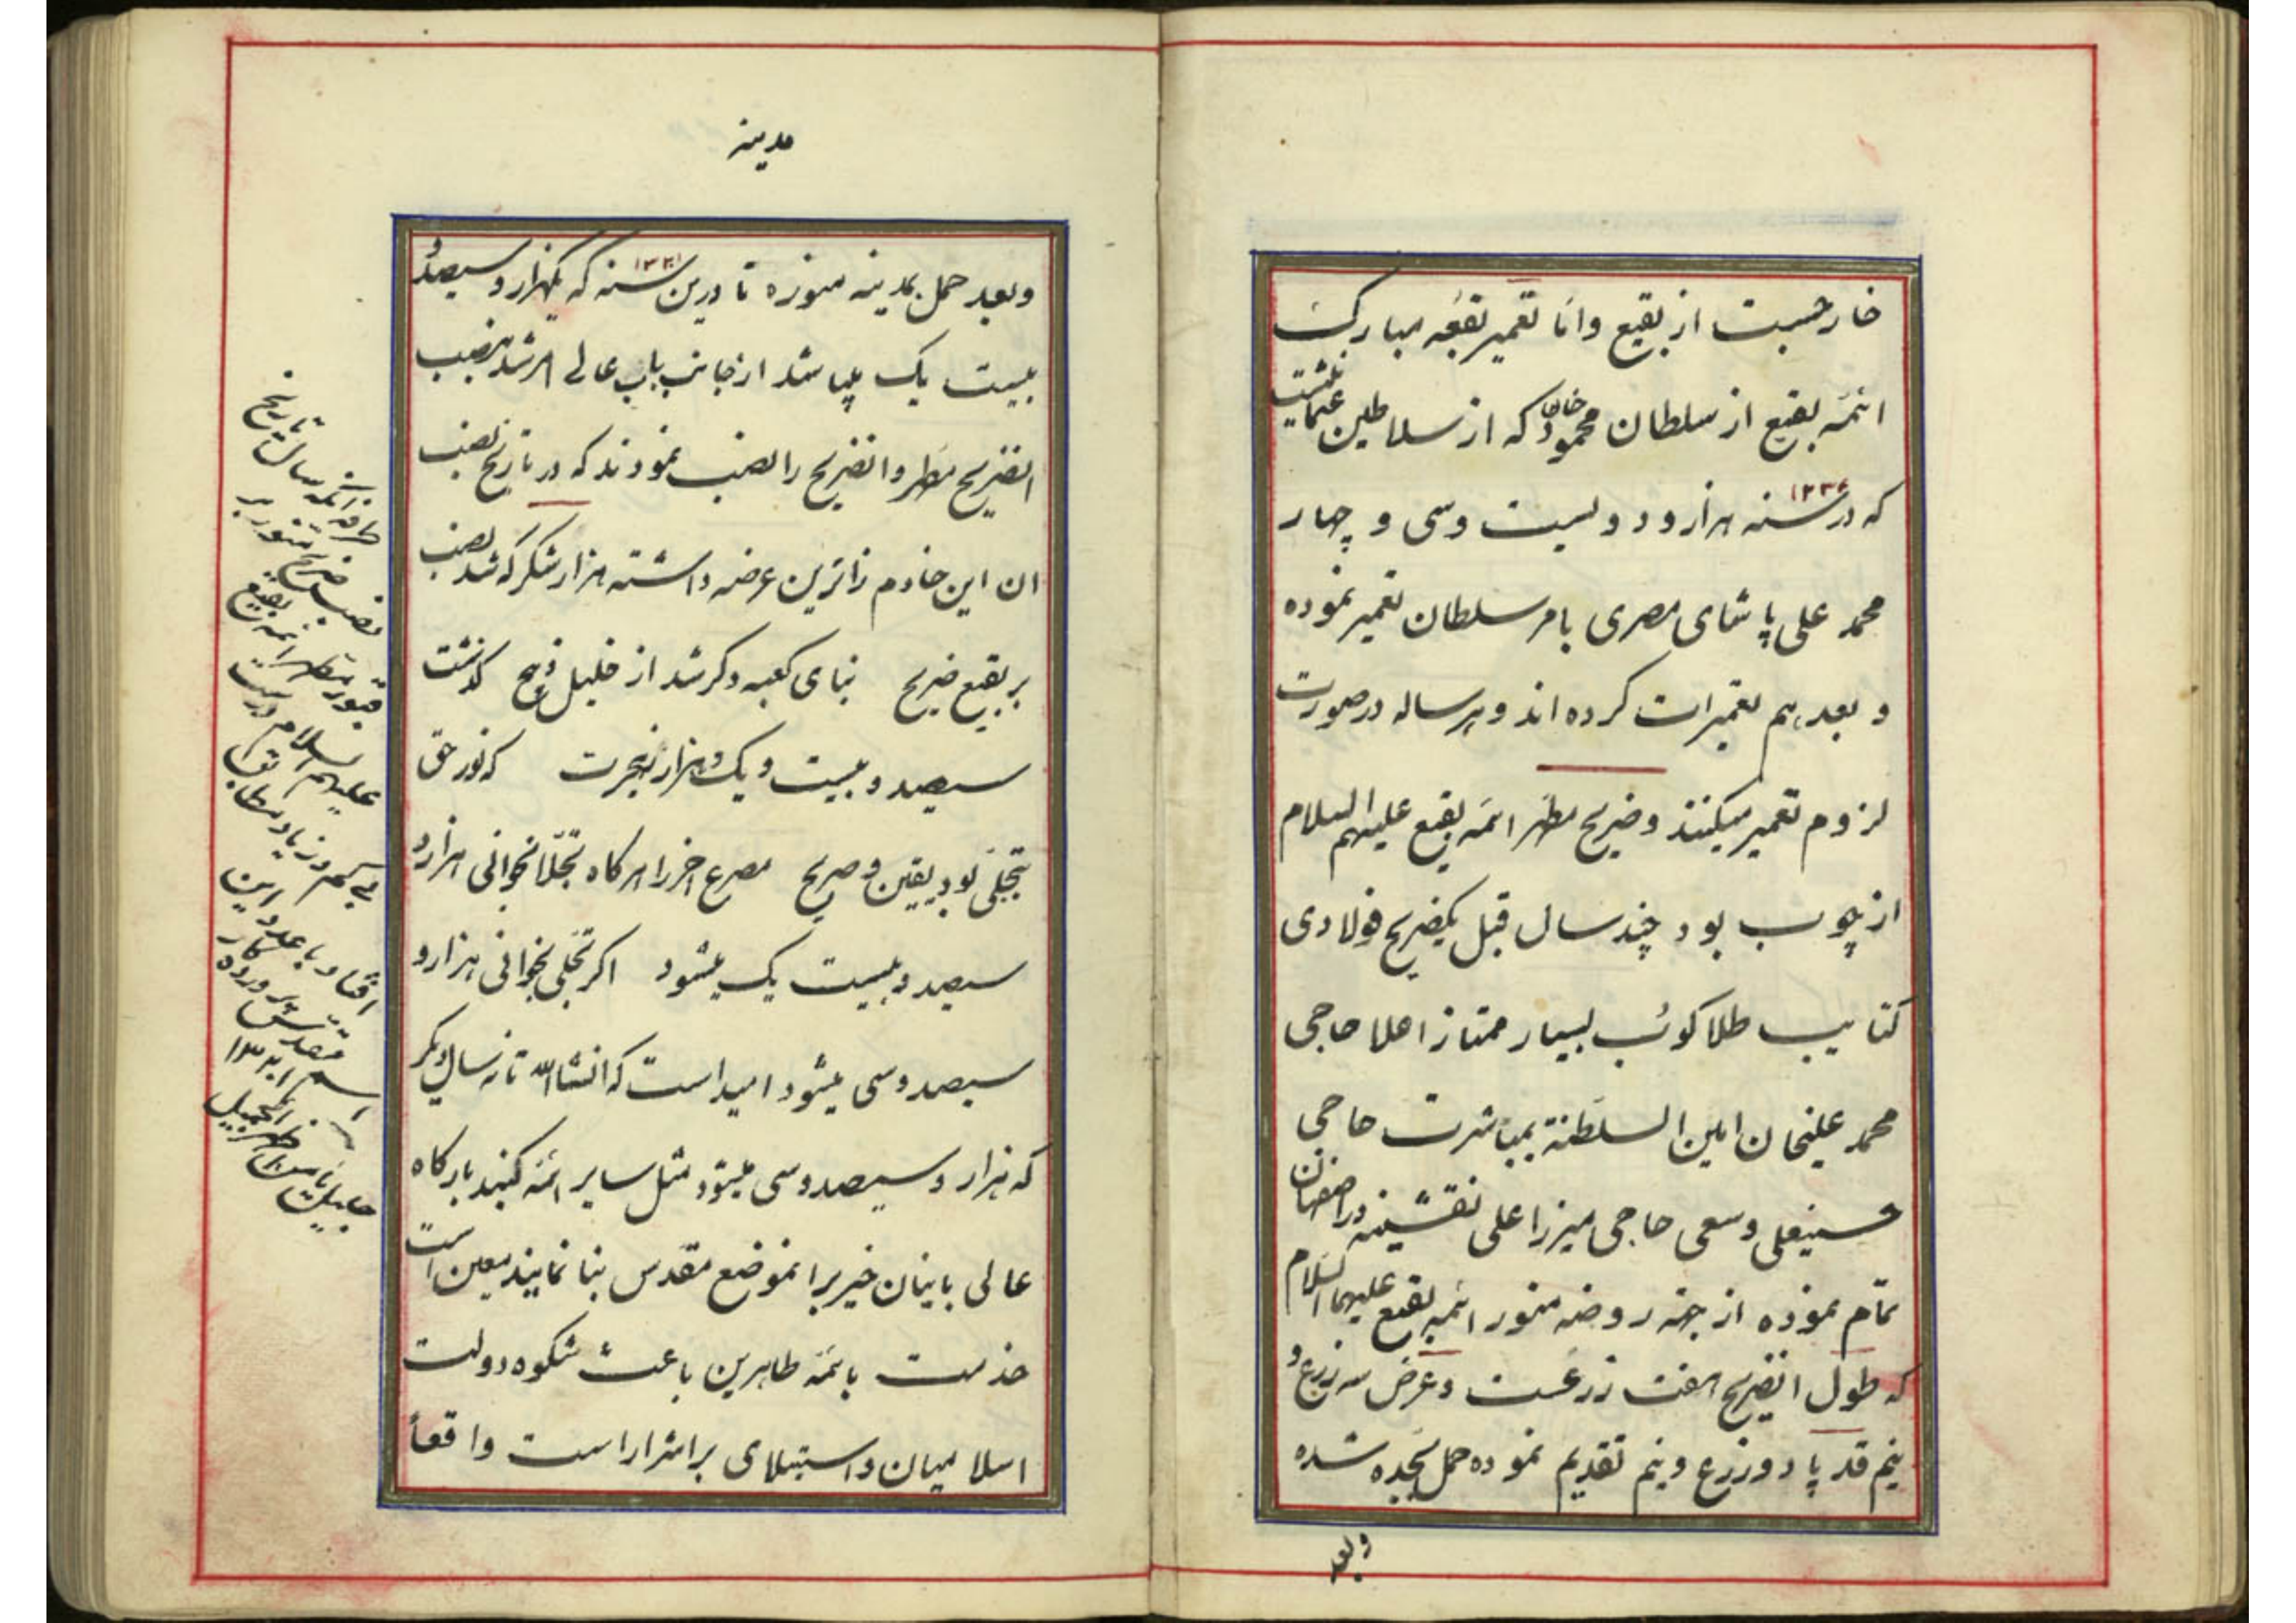 خارجست از بقیع و امّا تعمیر بقعه مبارک
ائمّه بقیع از سلطان محمود خان که از سلاطین عثمانیست
که در سنه ۱۲۳۴ هزار و دویست و سی و چهار
محمد علی پاشای مصری بامر سلطان تعمیر نموده
و بعد هم تعمیرات کرده اند و هر ساله در صورت
لزوم تعمیر میکنند و ضریح مطهر ائمه بقیع علیهم السلام
از چوب بود چند سال قبل یکضریح فولادی
کتایب طلا کوب بسیار ممتاز اعلا حاجی
محمد علیخان امین السلطنة بمباشرت حاجی
حسینعلی و سعی حاجی میرزا علی نقشینه در اصفهان
تمام نموده از جهة روضه منور ائمه بقیع علیهم السلام
که طول انضریح هفت زرعست و عرض سه زرع و
نیم قد پا دو زرع و نیم تقدیم نموده حمل بجده شده
و بعد
مدینه
و بعد حمل بمدینه منوره تا درین سنه ۱۳۲۱ که یکهزار و سیصد و
بیست یک میباشد از جانب باب عالی امر شد بنصب
انضریح مطهر و انضریح را نصب نمودند که در تاریخ نصب
ان این خادم زائرین عرضه داشته هزار شکر که شد نصب
بر بقیع ضریح بنای کعبه دگر شد از خلیل و ذبیح گذشت
سیصد و بیست و یک و هزار از هجرت که نور حق
بتجلّی بود بیقین و صریح مصرع اخر را هرگاه تجلّا بخوانی هزار و
سیصد و بیست یک میشود اگر تجلّی بخوانی هزار و
سیصد و سی میشود امید است که انشاالله تا نه سال دیگر
که هزار و سیصد و سی میشود مثل سایر ائمه گنبد بارگاه
عالی بانیان خیر برانموضع مقدس بنا نمایند معین است
خدمت بائمه طاهرین باعث شکوه دولت
اسلامیان و استیلای بر اشرار است واقعاً
طرفه انکه سال تاریخ
نصب ضریح منور بر
قبور مطهر ائمه بقیع
علیهم السلام درست
بی کم و زیاد مطابق
افتاد با عدد این
اسم